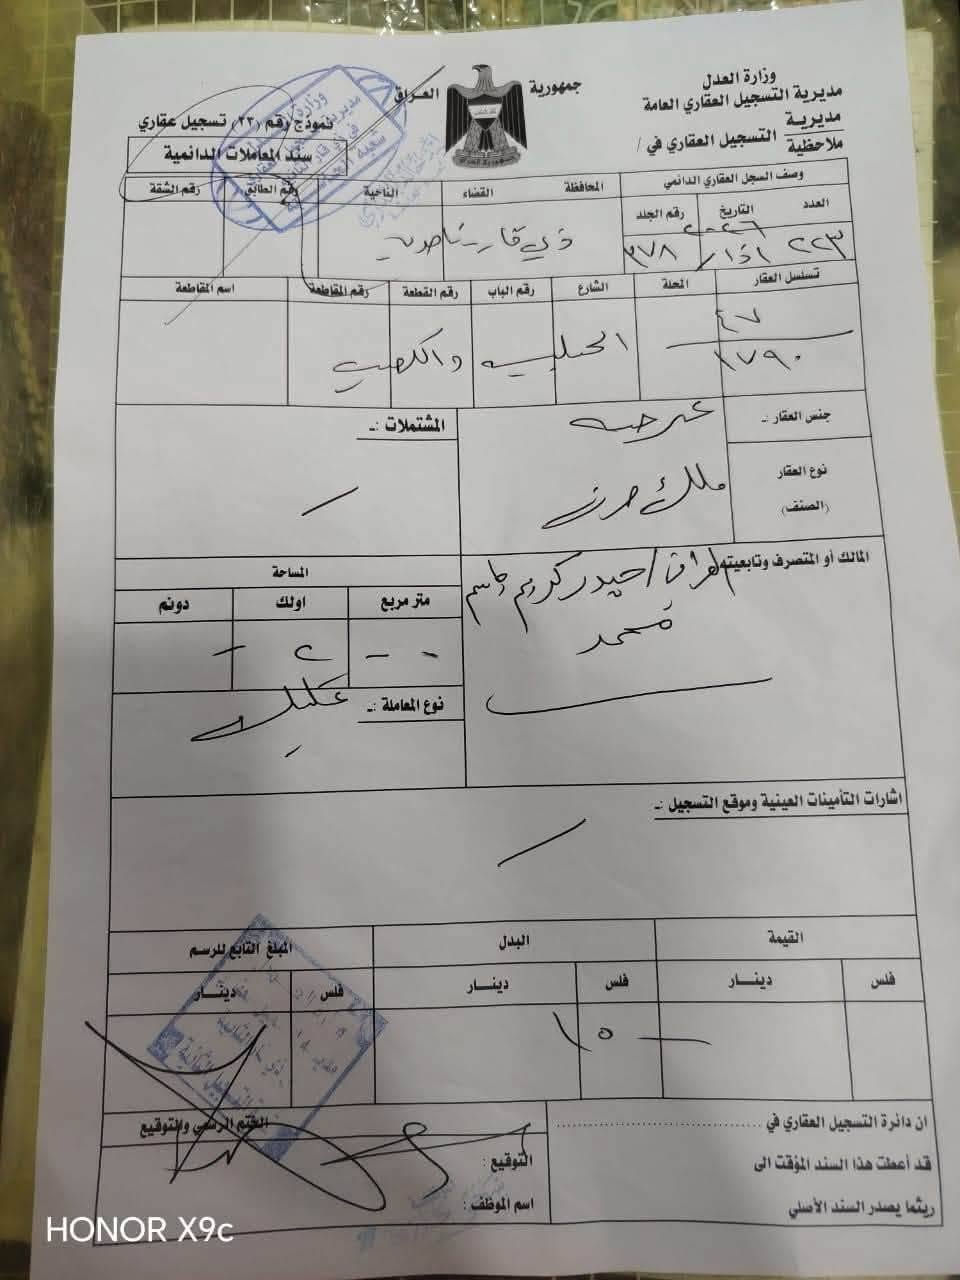 وزارة العدل
مديرية التسجيل العقاري العامة
مديرية
ملاحظية
التسجيل العقاري في /
جمهورية
العراق
نموذج رقم (٢٣) تسجيل عقاري
سند المعاملات الدائمية
وصف السجل العقاري الدائمي
المحافظة
القضاء
الناحية
رقم الطابق
رقم الشقة
العدد
التاريخ
رقم الجلد
٢٢٣
اذار
٢٠٢٦
٣٧٨
ذي قار - ناصرية
تسلسل العقار
المحلة
الشارع
رقم الباب
رقم القطعة
رقم المقاطعة
اسم المقاطعة
٤٧
١٧٩٠
جنس العقار :ـ
عرصه
المشتملات :ـ
نوع العقار
(الصنف)
ملك صرف
المالك أو المتصرف وتابعيته
العراق / حيدر كريم جاسم
محمد
المساحة
متر مربع
اولك
دونم
٢
نوع المعاملة :ـ
اشارات التأمينات العينية وموقع التسجيل :ـ
القيمة
البدل
المبلغ التابع للرسم
فلس
دينـــار
فلس
دينـــار
فلس
دينـــار
ان دائرة التسجيل العقاري في ........................
قد أعطت هذا السند المؤقت الى
ريثما يصدر السند الأصلي
الختم الرسمي والتوقيع
التوقيع :
اسم الموظف :
HONOR X9c